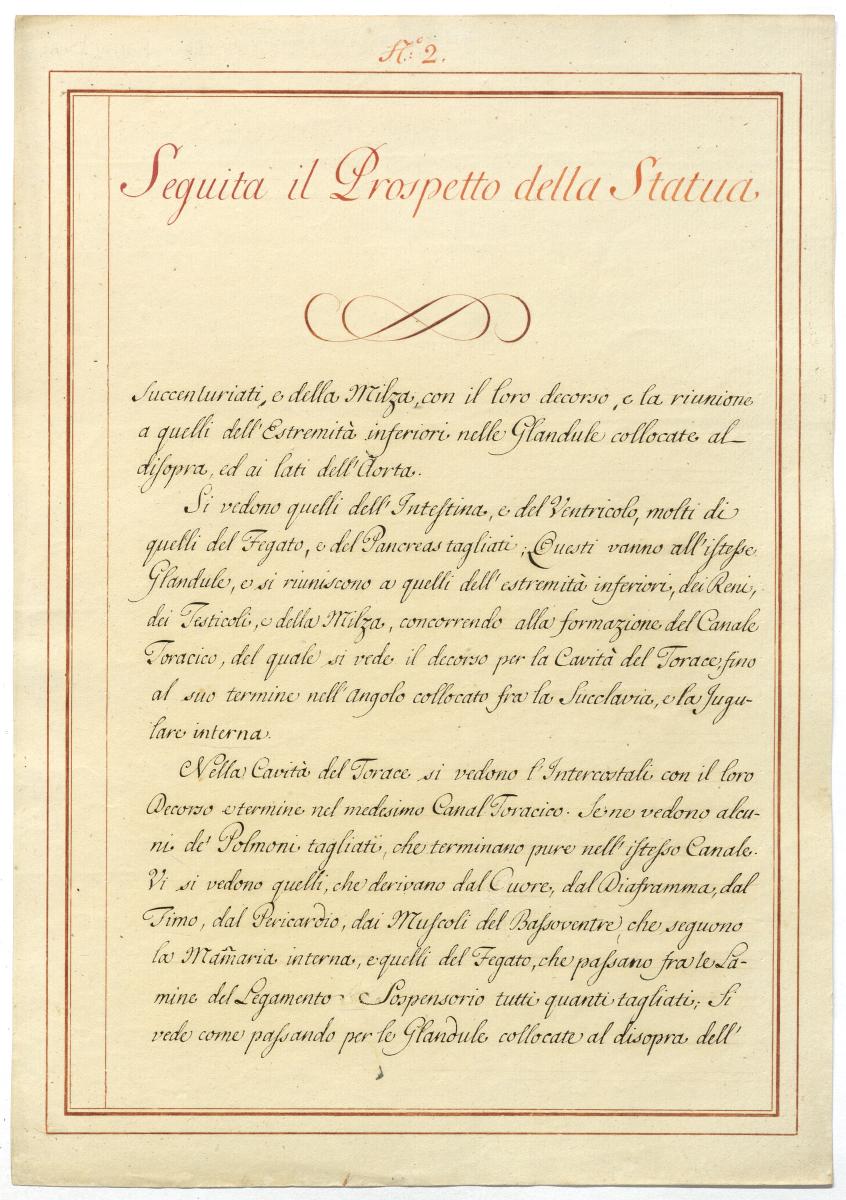 N.º 2.
Seguita il Prospetto della Statua
succenturiati, e della Milza, con il loro decorso, e la riunione
a quelli dell'Estremità inferiori nelle Glandule collocate al
disopra, ed ai lati dell'Aorta.
Si vedono quelli dell'Intestina, e del Ventricolo, molti di
quelli del Fegato, e del Pancreas tagliati; Questi vanno all'istesse
Glandule, e si riuniscono a quelli dell'estremità inferiori, dei Reni,
dei Testicoli, e della Milza, concorrendo alla formazione del Canale
Toracico, del quale si vede il decorso per la Cavità del Torace, fino
al suo termine nell'Angolo collocato fra la Succlavia, e la Jugu-
lare interna.
Nella Cavità del Torace si vedono l'Intercostali con il loro
Decorso e termine nel medesimo Canal Toracico. Se ne vedono alcu-
ni de' Polmoni tagliati, che terminano pure nell'istesso Canale.
Vi si vedono quelli, che derivano dal Cuore, dal Diaframma, dal
Timo, dal Pericardio, dai Muscoli del Bassoventre, che seguono
la Mam̃aria interna, e quelli del Fegato, che passano fra le La-
mine del Legamento Sospensorio tutti quanti tagliati; Si
vede come passando per le Glandule collocate al disopra dell'